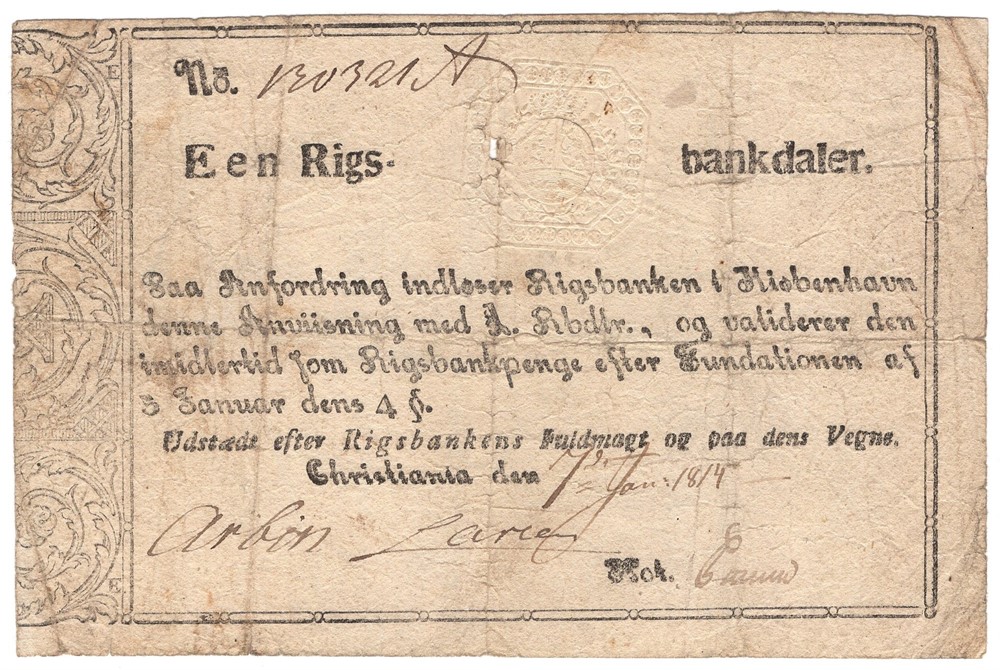 No. 130321 A
Een Rigs- bankdaler.
Paa Anfordring indløser Rigsbanken i Kiøbenhavn
denne Anviisning med 1. Rbdlr., og validerer den
imidlertid som Rigsbankpenge efter Fundationen af
5 Januar dens 4 §.
Udstædt efter Rigsbankens Fuldmagt og paa dens Vegne.
Christiania den 7de Jan: 1814
Arbin
Not.
E
E